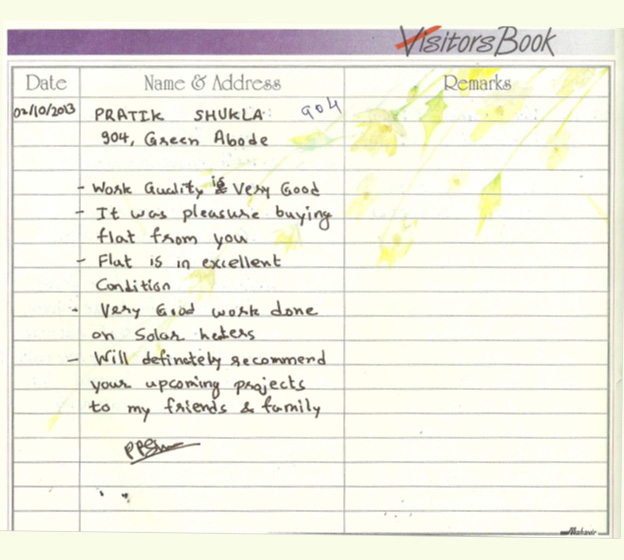 Visitors Book
Date Name & Address Remarks
02/10/2013 PRATIK SHUKLA 904
904, Green Abode
- Work Quality is Very Good
- It was pleasure buying
flat from you
- Flat is in excellent
Condition
- Very Good work done
on Solar heters
- Will definetely recommend
your upcoming projects
to my friends & family
Mahavir